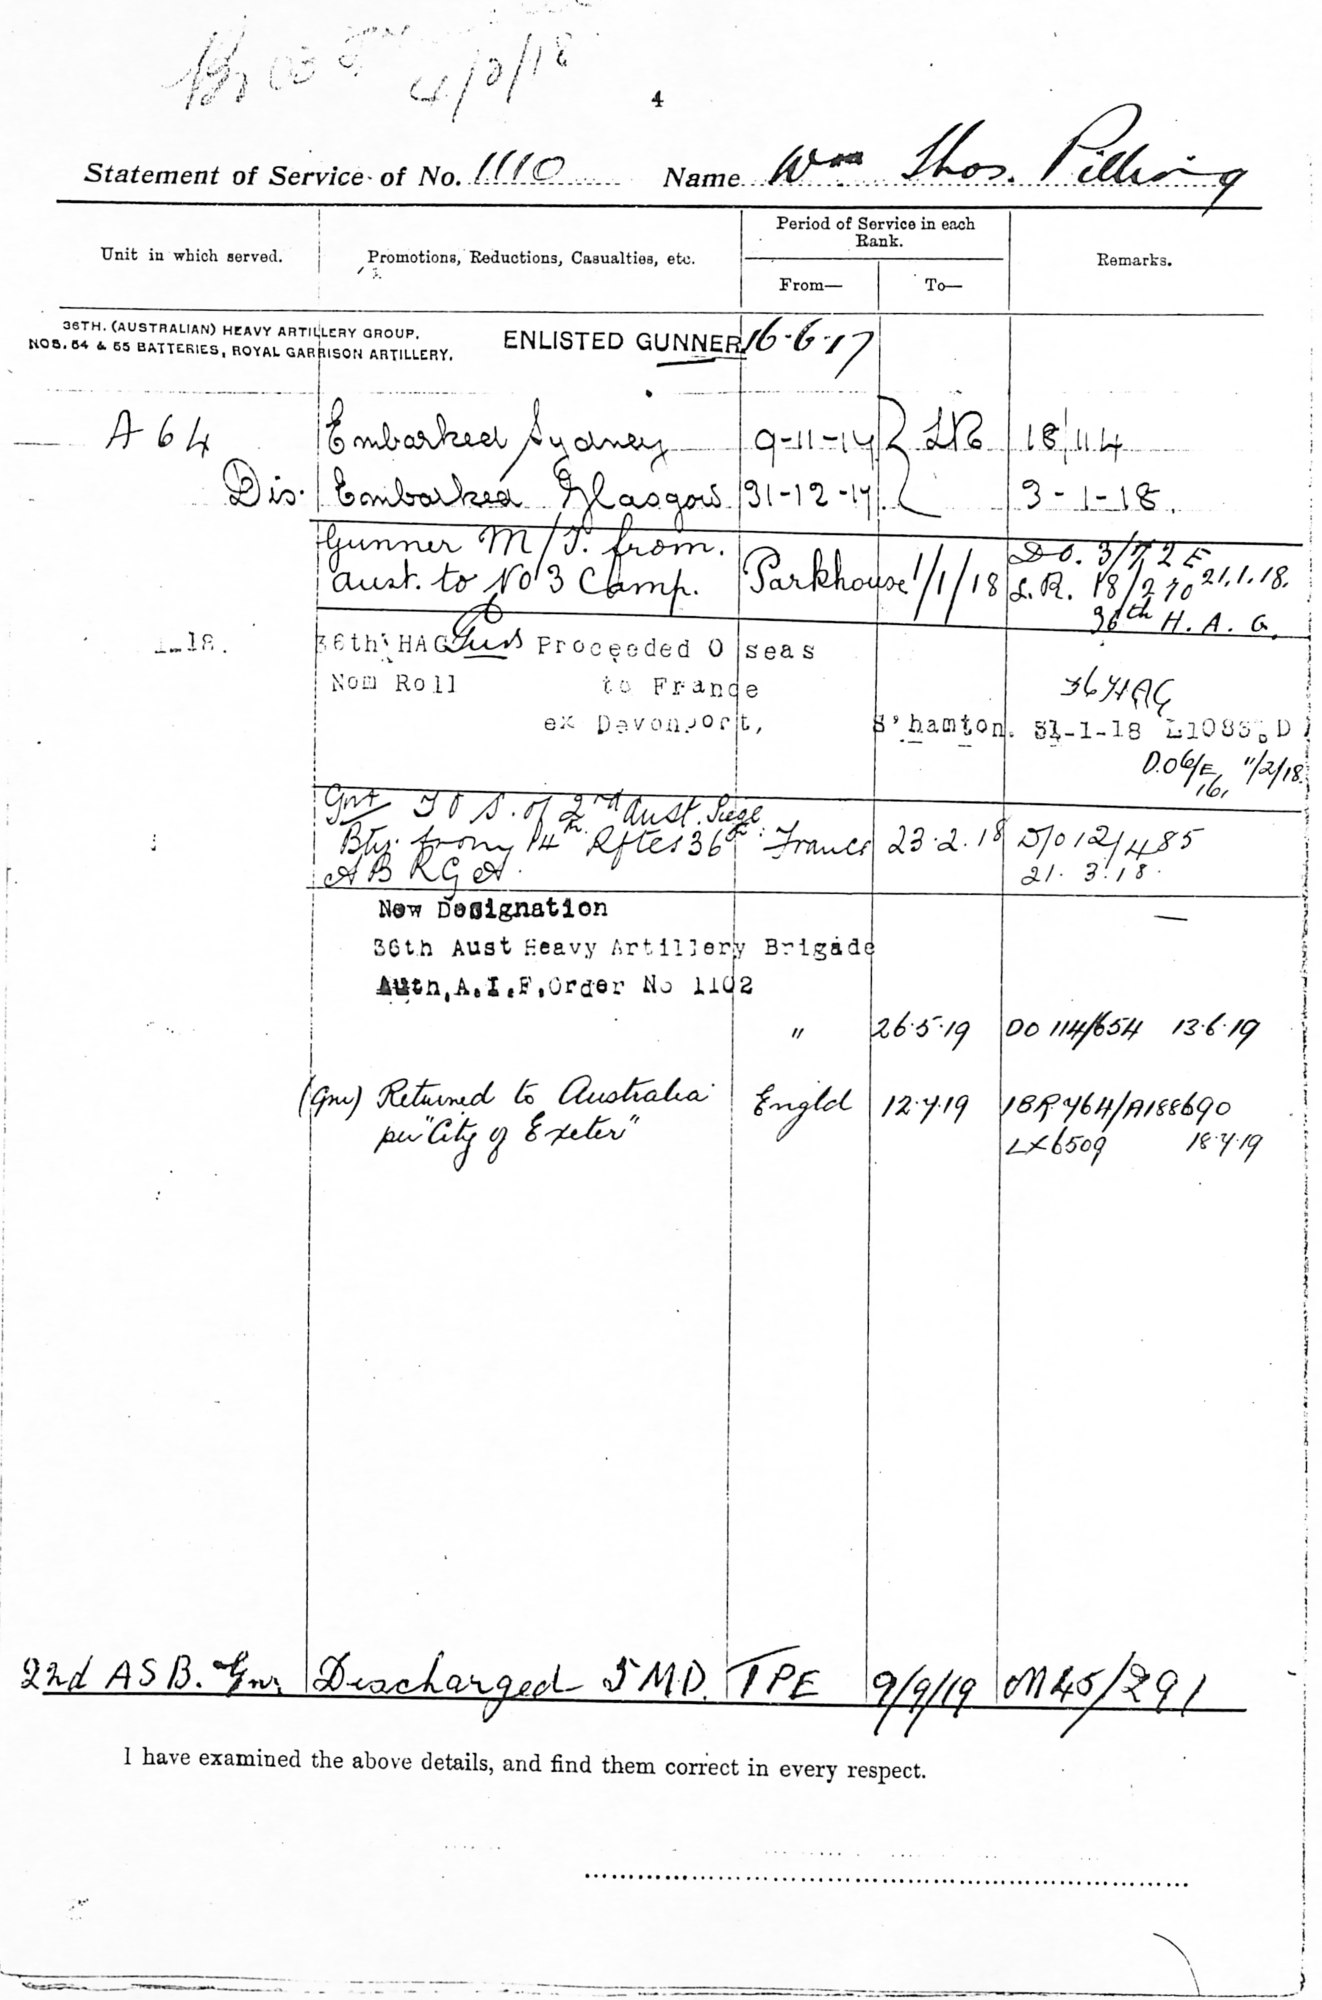 4/3/18
4
Statement of Service of No. 1110 Name Wm Thos. Pilling
Unit in which served. Promotions, Reductions, Casualties, etc. Period of Service in each Rank. From— To— Remarks.
36TH. (AUSTRALIAN) HEAVY ARTILLERY GROUP. ENLISTED GUNNER 16-6-17
NOS. 54 & 55 BATTERIES, ROYAL GARRISON ARTILLERY.
A 64 Embarked Sydney 9-11-17 LR 18/114
Dis. Embarked Glasgow 31-12-17 3-1-18.
Gunner M/T. from. Parkhouse 1/1/18 DO. 3/72E
Aust. to No 3 Camp. L.R. 18/270 21.1.18.
36th H.A.G.
1-18. 36th HAG Proceeded O seas
Nom Roll to France 36 HAG
ex Devonport, S'hamton. 31-1-18 D
D.O 6/E 11/2/18.
161
Gnr T O S. of 2nd Aust. Siege
Bty. from 14th Rftes 36th France 23.2.18 D/O 12/485
A B R G A. 21.3.18.
New Designation
36th Aust Heavy Artillery Brigade
Auth, A.I.F, Order No 1102
" 26.5.19 DO 114/654 13.6.19
(Gnr) Returned to Australia Engld 12.7.19 1BR 764/A188690
per "City of Exeter" LX6509 18.7.19
2nd A S B. Gnr. Discharged 5 M.D. TPE 9/9/19 M45/291
I have examined the above details, and find them correct in every respect.